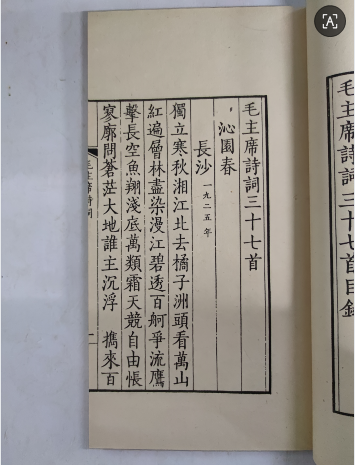 毛主席詩詞三十七首
沁園春
長沙 一九二五年
獨立寒秋湘江北去橘子洲頭看萬山
紅遍層林盡染漫江碧透百舸爭流鷹
擊長空魚翔淺底萬類霜天競自由悵
寥廓問蒼茫大地誰主沉浮 攜來百
毛主席詩詞
一
毛主席詩詞三十七首目錄